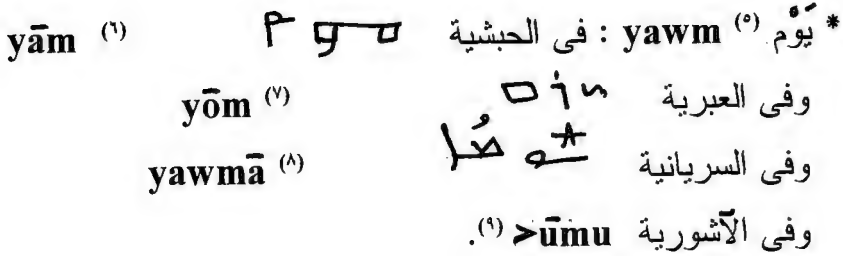 * يَوْم (٥) yawm : فى الحبشية yām (٦)
وفى العبرية יוֹם yōm (٧)
وفى السريانية ܝܰܘܡܳܐ yawmā (٨)
وفى الآشورية >ūmu (٩).